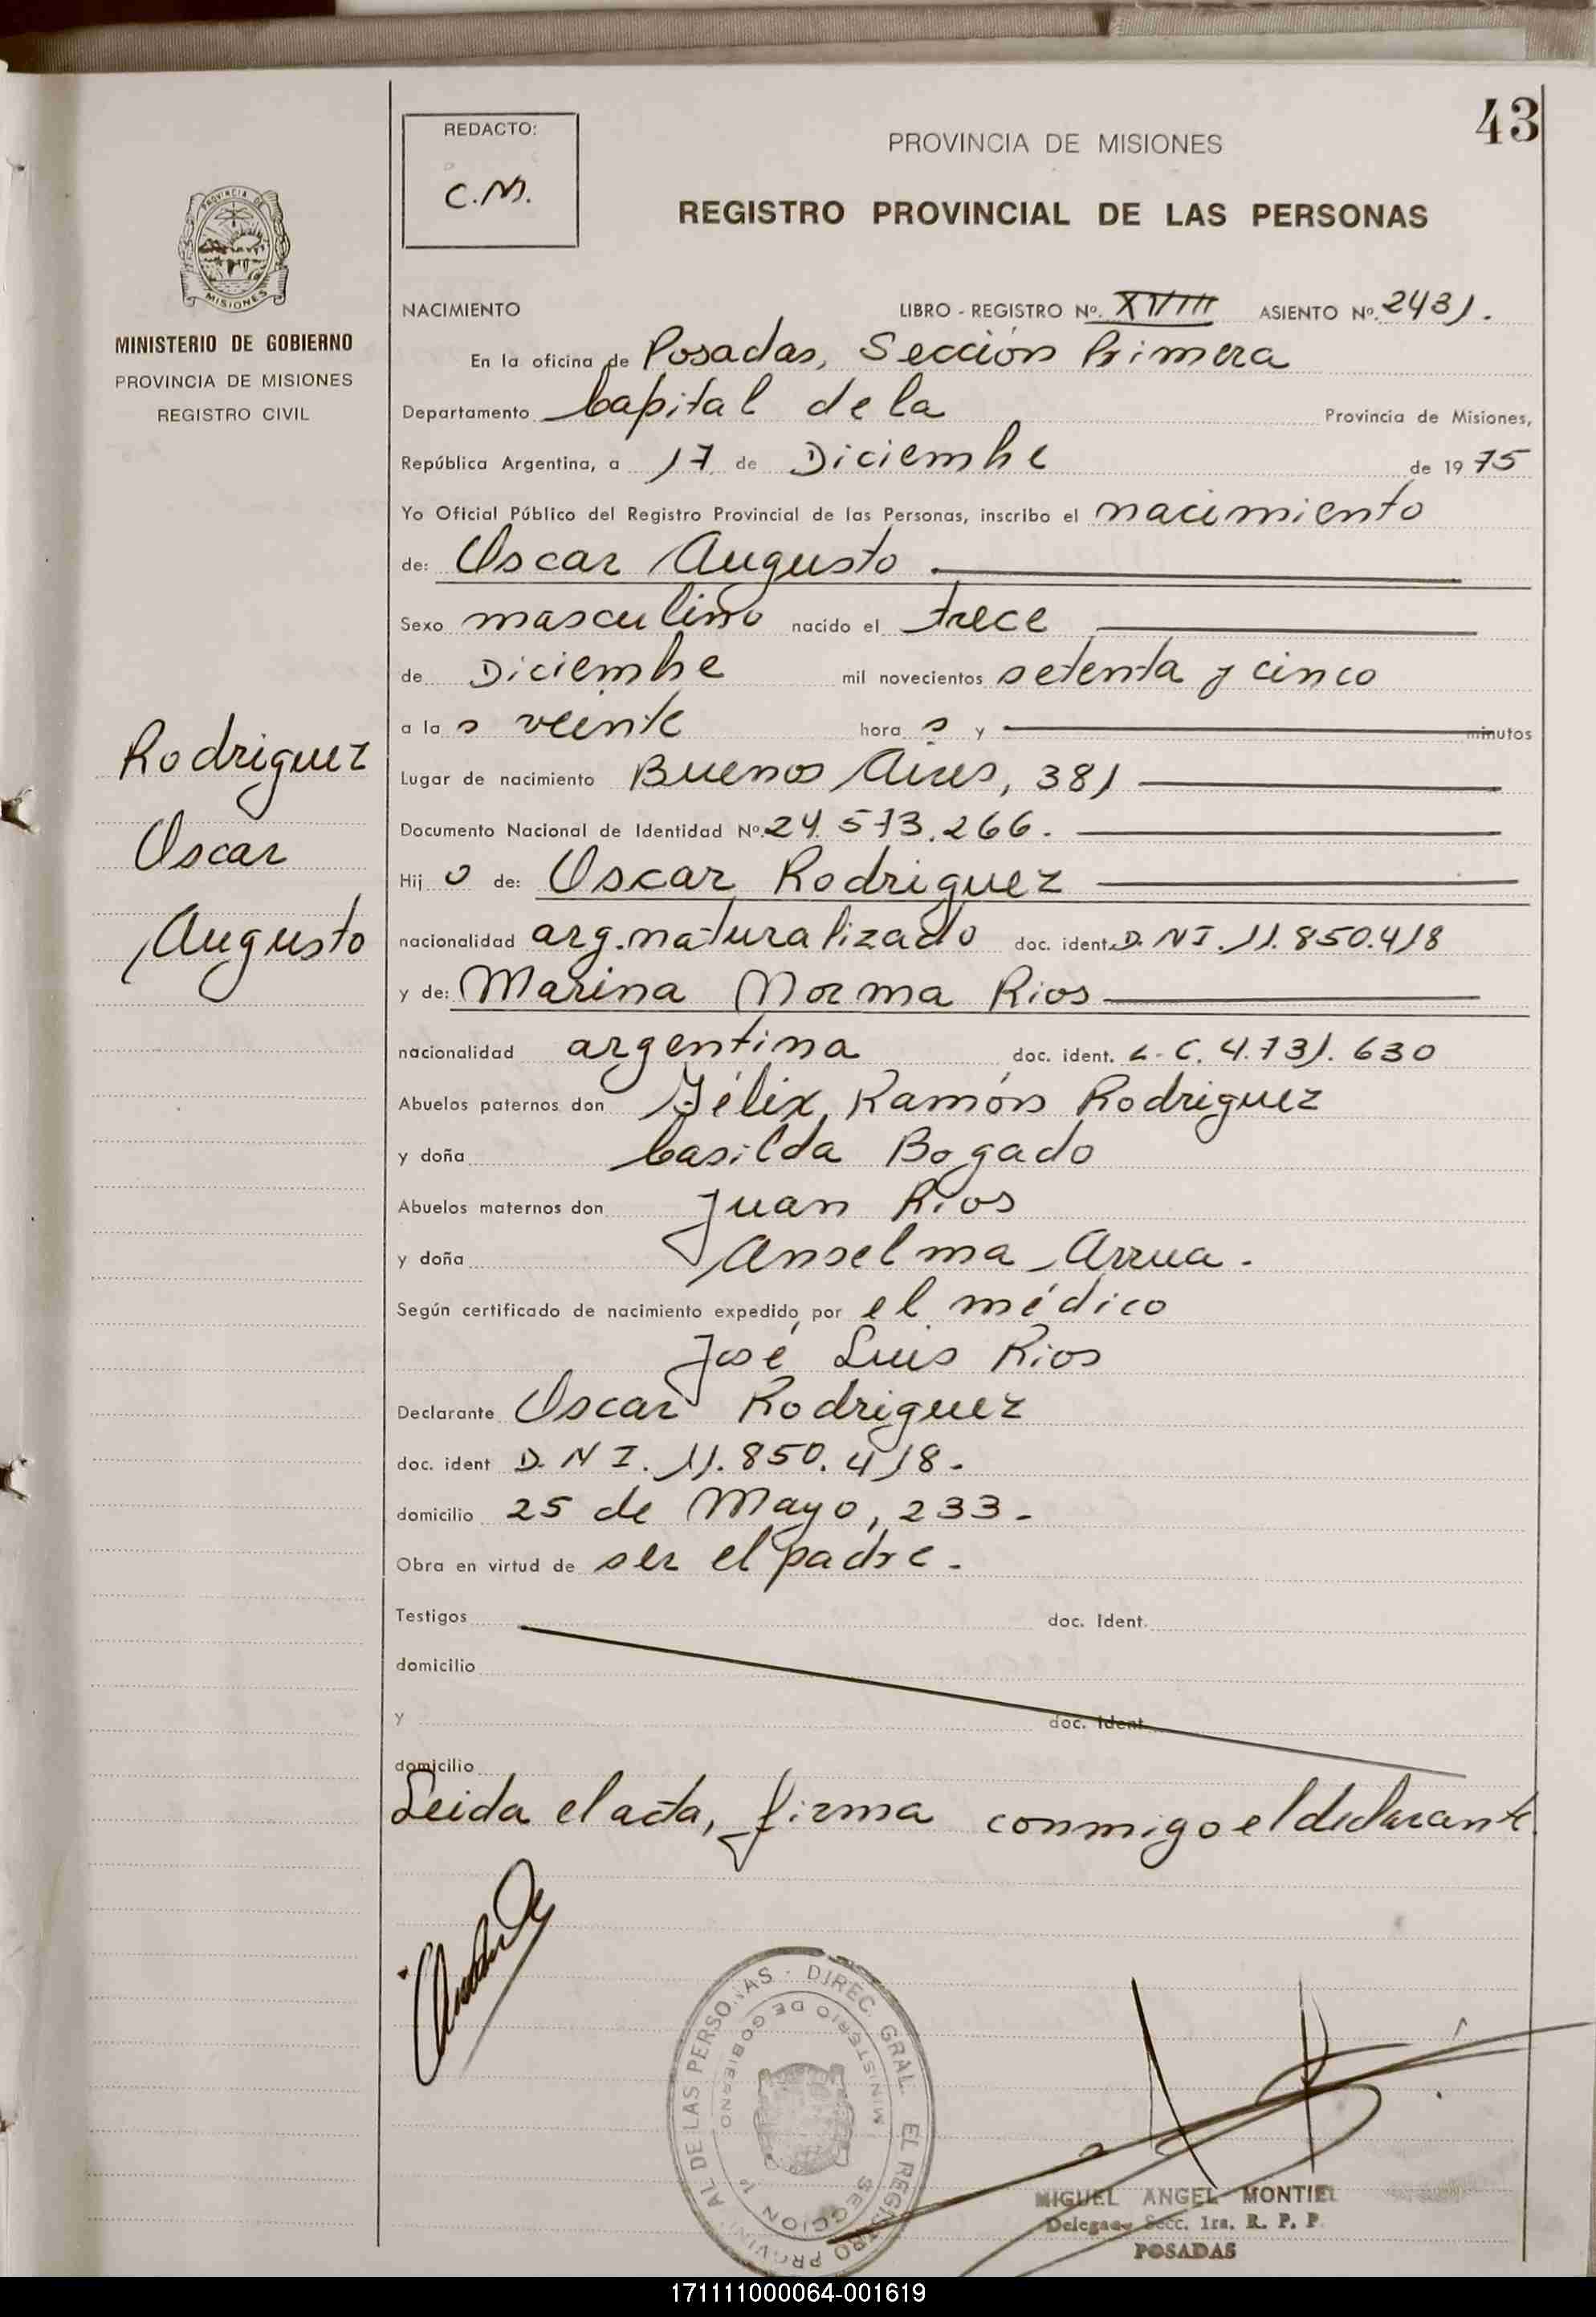 43
REDACTO:
C.M.
PROVINCIA DE MISIONES
REGISTRO PROVINCIAL DE LAS PERSONAS
PROVINCIA DE
MISIONES
MINISTERIO DE GOBIERNO
PROVINCIA DE MISIONES
REGISTRO CIVIL
NACIMIENTO LIBRO - REGISTRO Nº. XVIII ASIENTO Nº. 2431.
En la oficina de Posadas, Sección Primera
Departamento Capital de la Provincia de Misiones,
República Argentina, a 17 de Diciembre de 1975
Yo Oficial Público del Registro Provincial de las Personas, inscribo el nacimiento
de: Oscar Augusto
Sexo masculino nacido el trece
de Diciembre mil novecientos setenta y cinco
a la s veinte hora s y minutos
Lugar de nacimiento Buenos Aires, 381
Documento Nacional de Identidad Nº. 24.573.266.
Hij o de: Oscar Rodriguez
nacionalidad arg. naturalizado doc. ident. D.NI. 11.850.418
y de: Marina Norma Rios
nacionalidad argentina doc. ident. L.C. 4.731.630
Abuelos paternos don Félix Ramón Rodriguez
y doña Casilda Bogado
Abuelos maternos don Juan Rios
y doña Anselma Arrua.
Según certificado de nacimiento expedido por el médico
José Luis Rios
Declarante Oscar Rodriguez
doc. ident D.NI. 11.850.418.
domicilio 25 de Mayo, 233.
Obra en virtud de ser el padre.
Testigos doc. Ident.
domicilio
y doc. ident.
domicilio
Leida el acta, firma conmigo el declarante.
Rodriguez
Oscar
Augusto
DIREC. GRAL. EL REGISTRO PROVINCIAL DE LAS PERSONAS
MINISTERIO DE GOBIERNO
SECCION 1ª
MIGUEL ANGEL MONTIEL
Delegado Secc. 1ra. R. P. P.
POSADAS
171111000064-001619